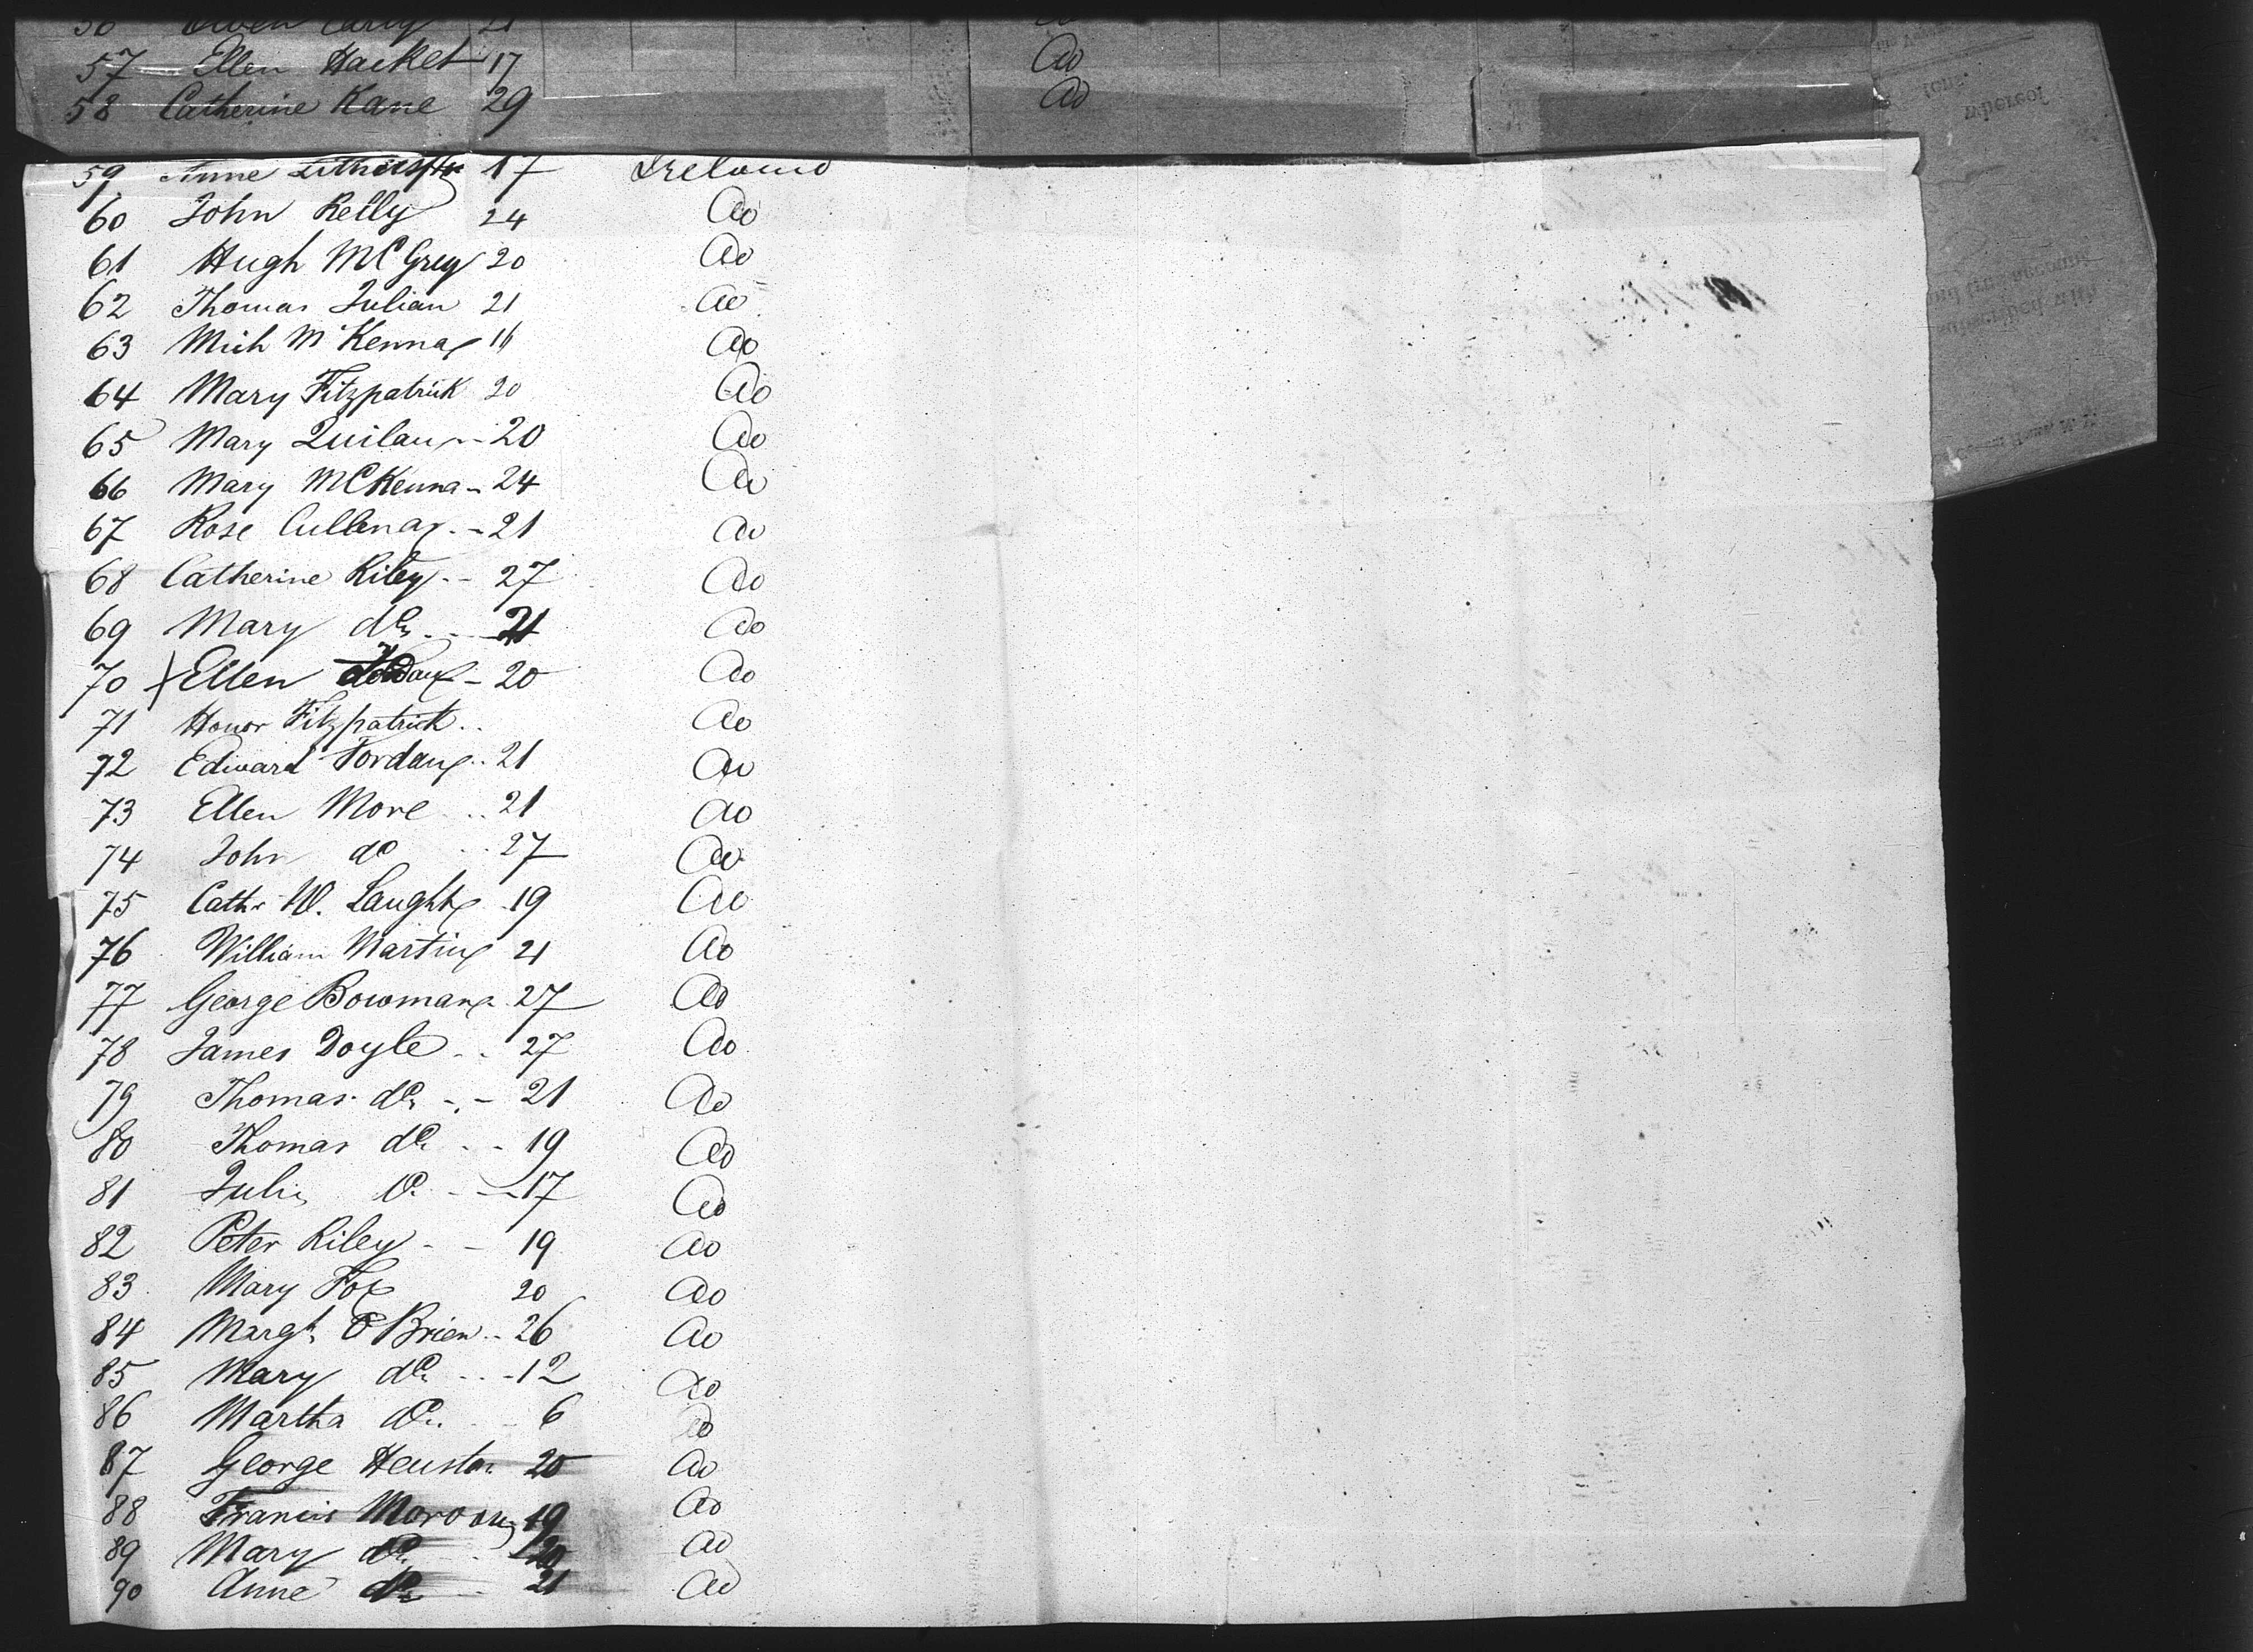 57 Ellen Hacket 17 do
58 Catherine Kane 29 do
59 Anne 17 Ireland
60 John Relly 24 do
61 Hugh McGrey 20 do
62 Thomas Julian 21 do
63 Mich McKenna 16 do
64 Mary Fitzpatrick 20 do
65 Mary Quilan 20 do
66 Mary McKenna 24 do
67 Rose Cullen 21 do
68 Catherine Riley 27 do
69 Mary do 21 do
70 X Ellen Jordan 20 do
71 Honor Fitzpatrick do
72 Edward Jordan 21 do
73 Ellen More 21 do
74 John do 27 do
75 Cathe 19 do
76 William Martin 21 do
77 George Bowman 27 do
78 James Doyle 27 do
79 Thomas do 21 do
80 Thomas do 19 do
81 Julia do 17 do
82 Peter Riley 19 do
83 Mary Fox 20 do
84 Margt O'Brien 26 do
85 Mary do 12 do
86 Martha do 6 do
87 George Heuston 20 do
88 Francis Moroon 19 do
89 Mary do 20 do
90 Anne do 21 do
whereof